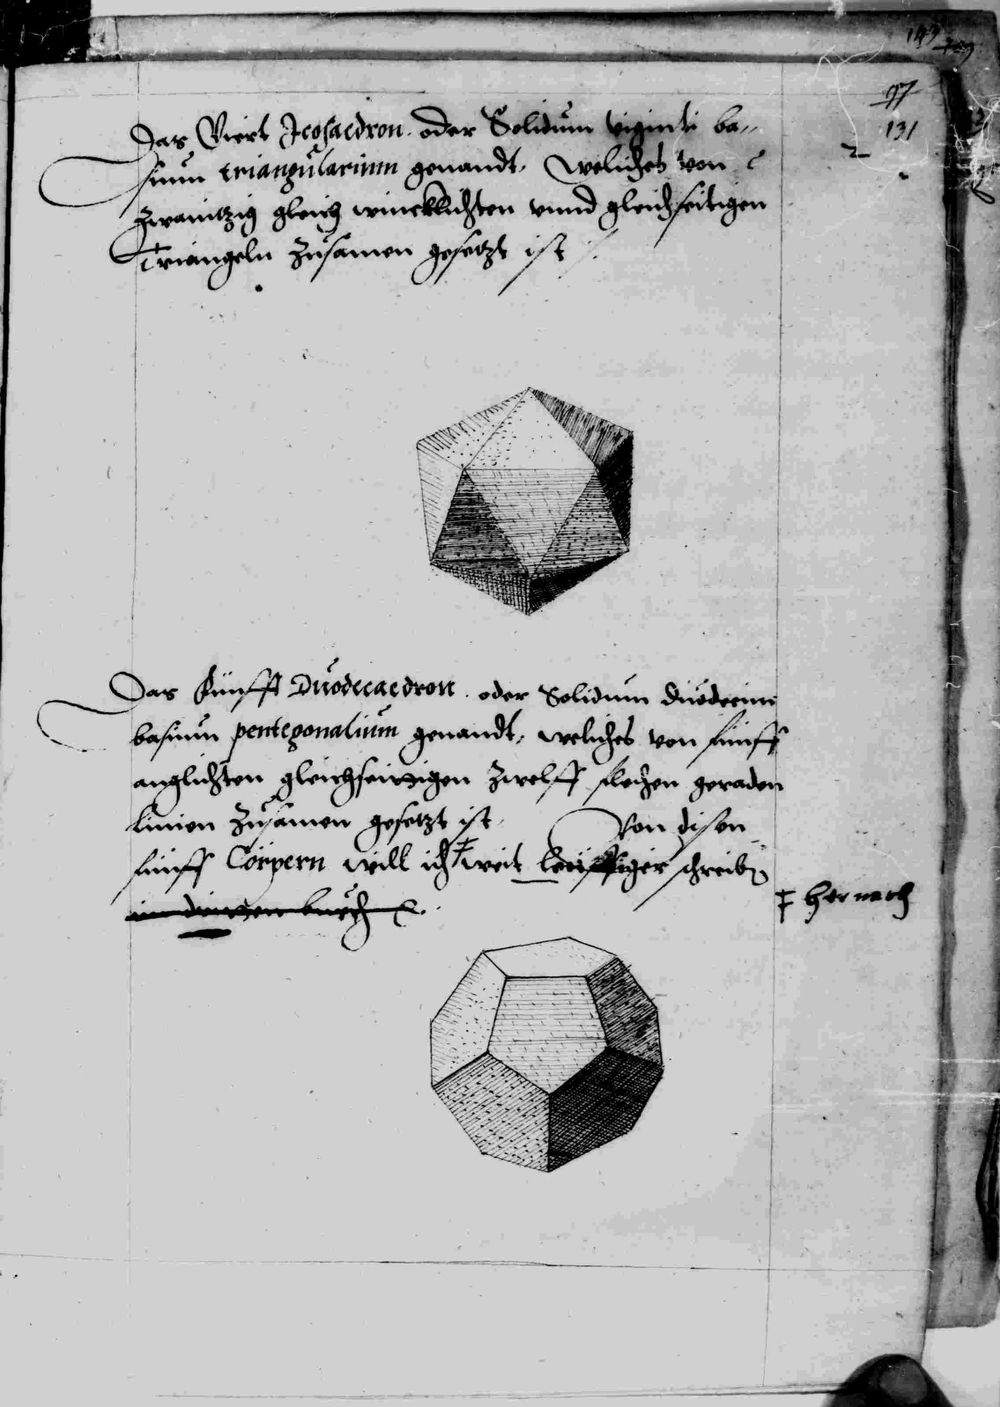 149
97
131
Das Viert Icosaedron oder Solidum viginti ba-
sium triangularium genandt, welches von
zwaintzig gleich wincklichten vnnd gleichseitigen
Triangeln zusamen gesetzt ist
Das Fünfft Duodecaedron oder Solidum duodecim
basium pentegonalium genandt, welches von fünff
anglichten gleichseitigen zwelff flechen geraden
Linien zusamen gesetzt ist, Von disen
fünff Cörpern will ich weit leüffiger schreiben
hernach